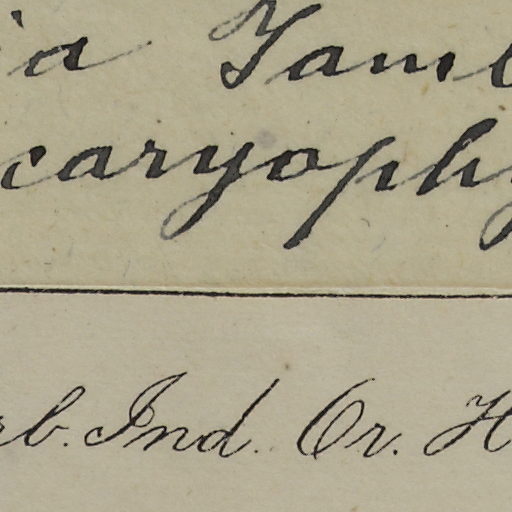 ia Jaml
caryophy
rb. Ind. Or. H